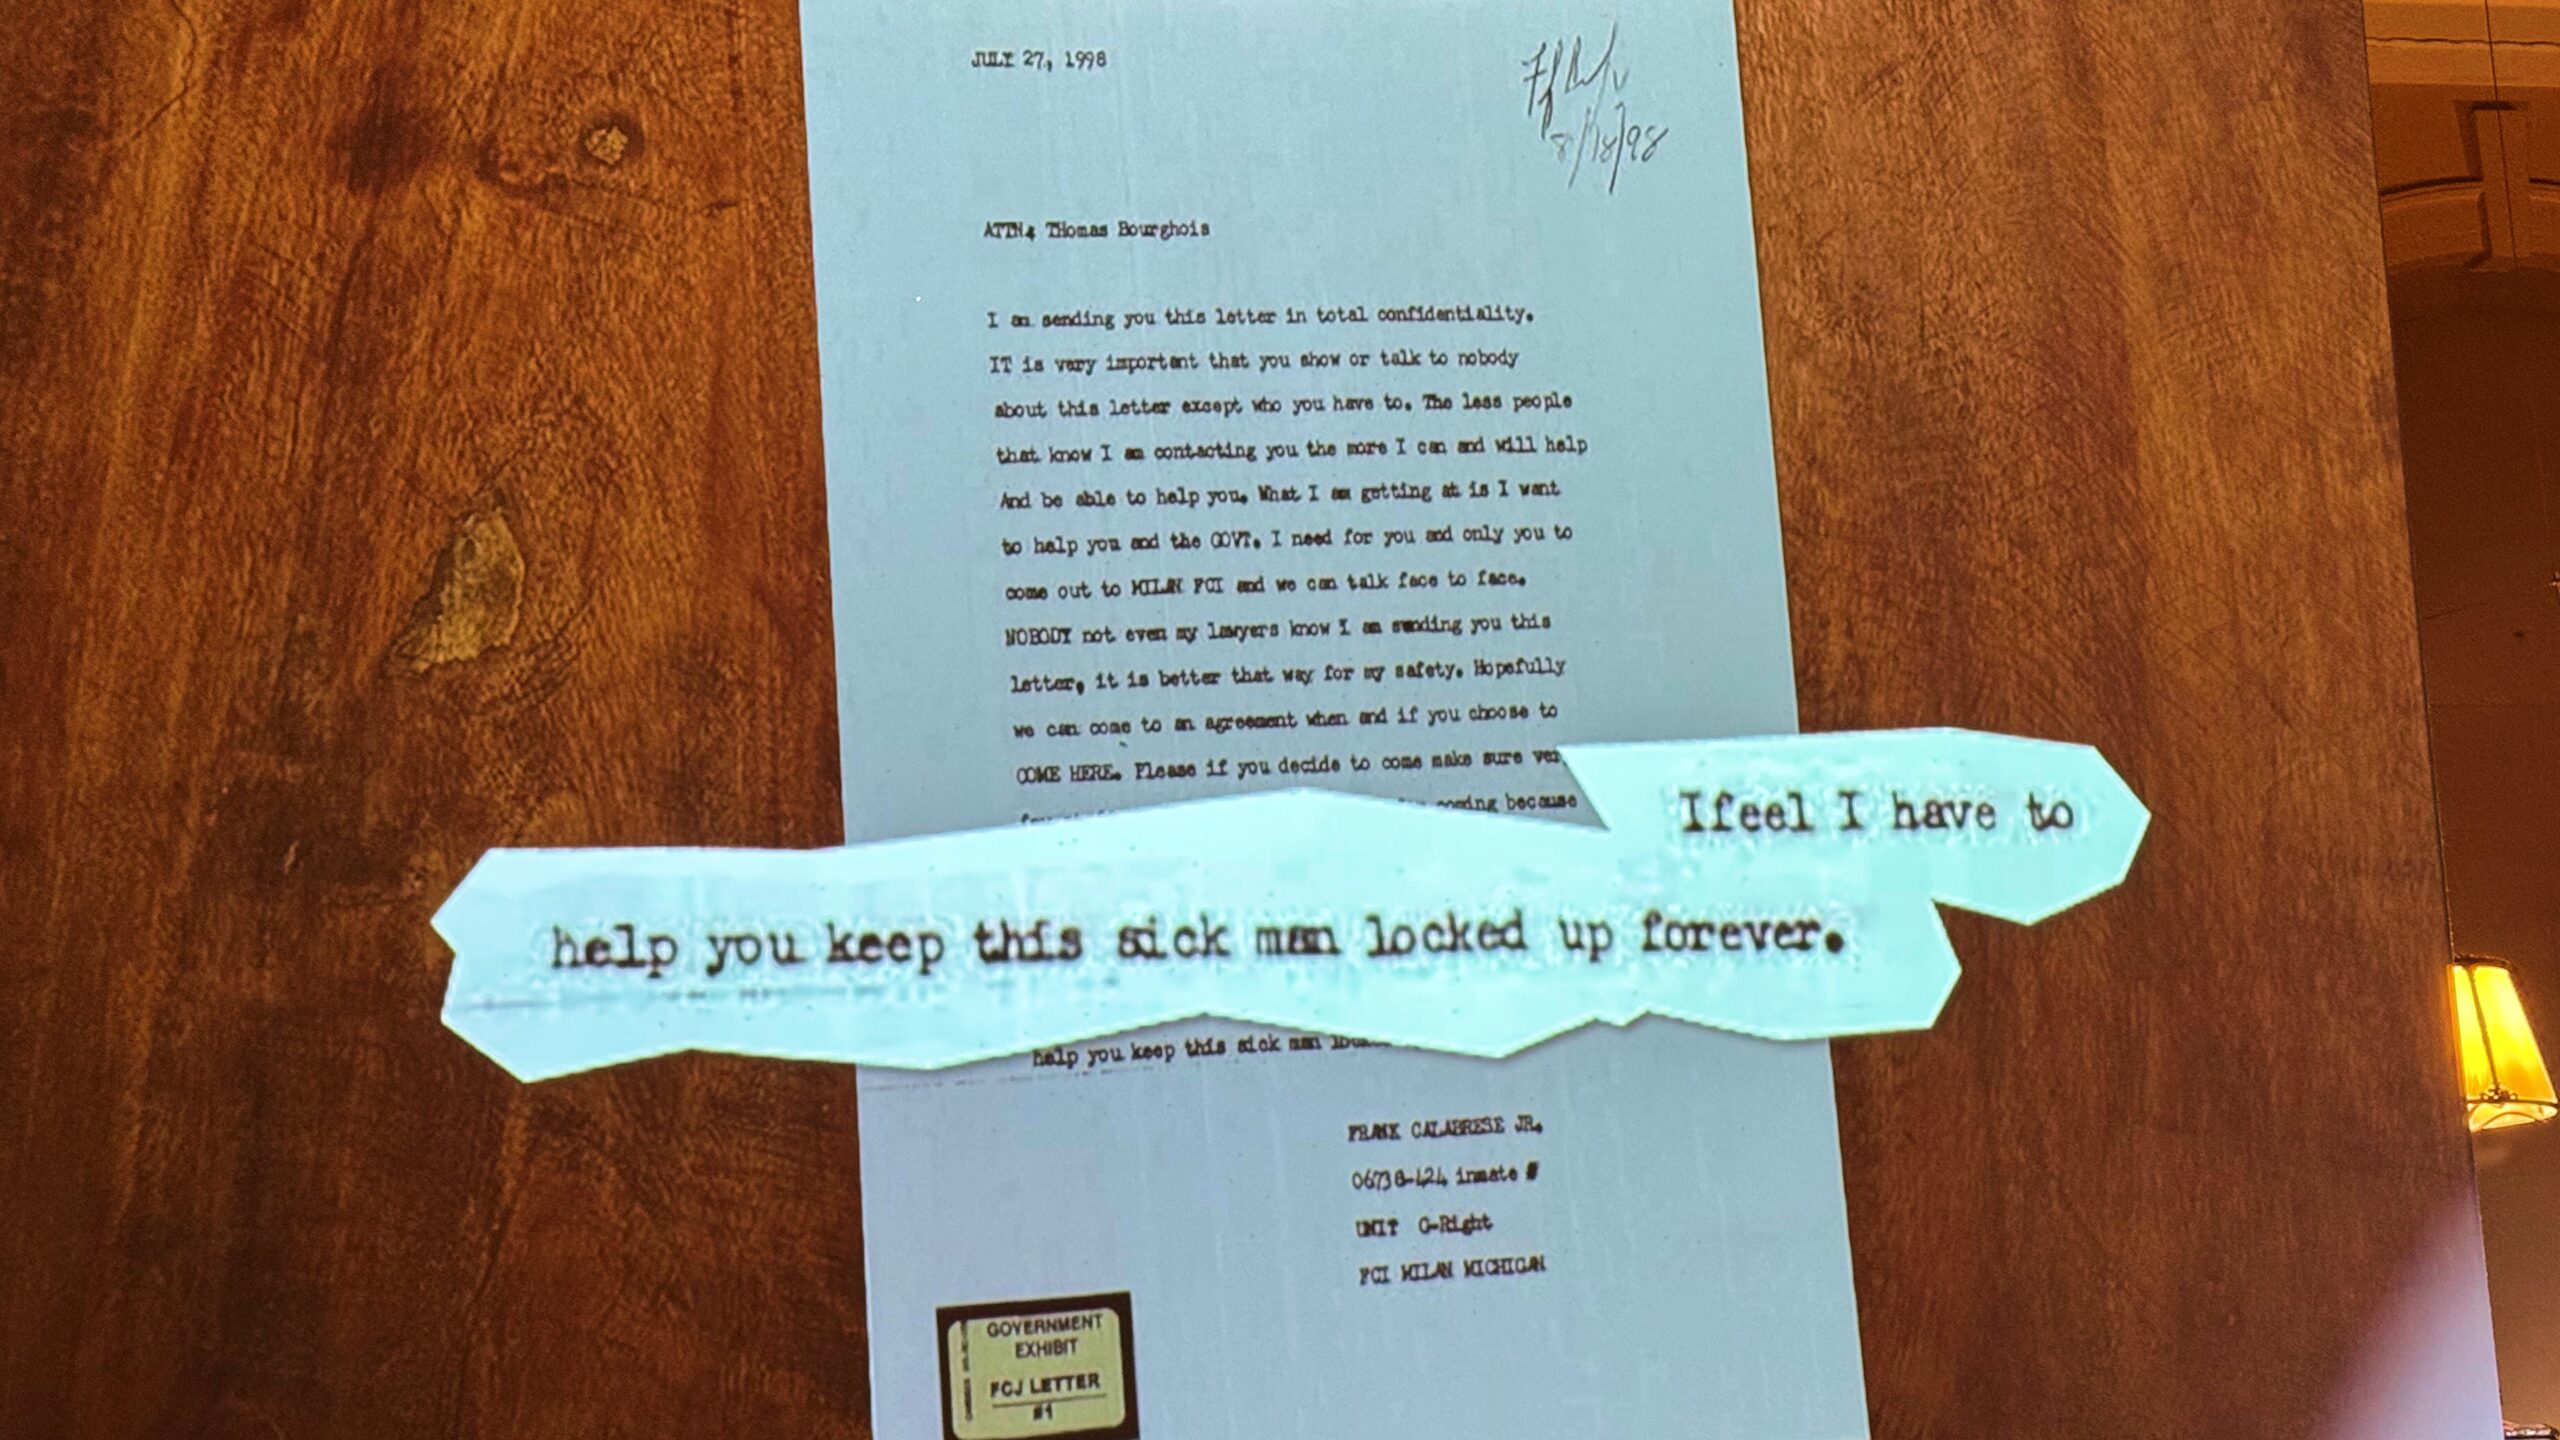 JULY 27, 1998
8/18/98
ATTN: THomas Bourghois
I am sending you this letter in total confidentiality.
IT is very important that you show or talk to nobody
about this letter except who you have to. The less people
that know I am contacting you the more I can and will help
And be able to help you. What I am getting at is I want
to help you and the GOVT. I need for you and only you to
come out to MILAN FCI and we can talk face to face.
NOBODY not even my lawyers know I am sending you this
letter, it is better that way for my safety. Hopefully
we can come to an agreement when and if you choose to
COME HERE. Please if you decide to come make sure
coming because
Ifeel I have to
help you keep this sick man locked up forever.
help you keep this sick man
FRANK CALABRESE JR.
06738-424 inmate #
UNIT G-Right
FCI MILAN MICHIGAN
GOVERNMENT
EXHIBIT
FCJ LETTER
#1